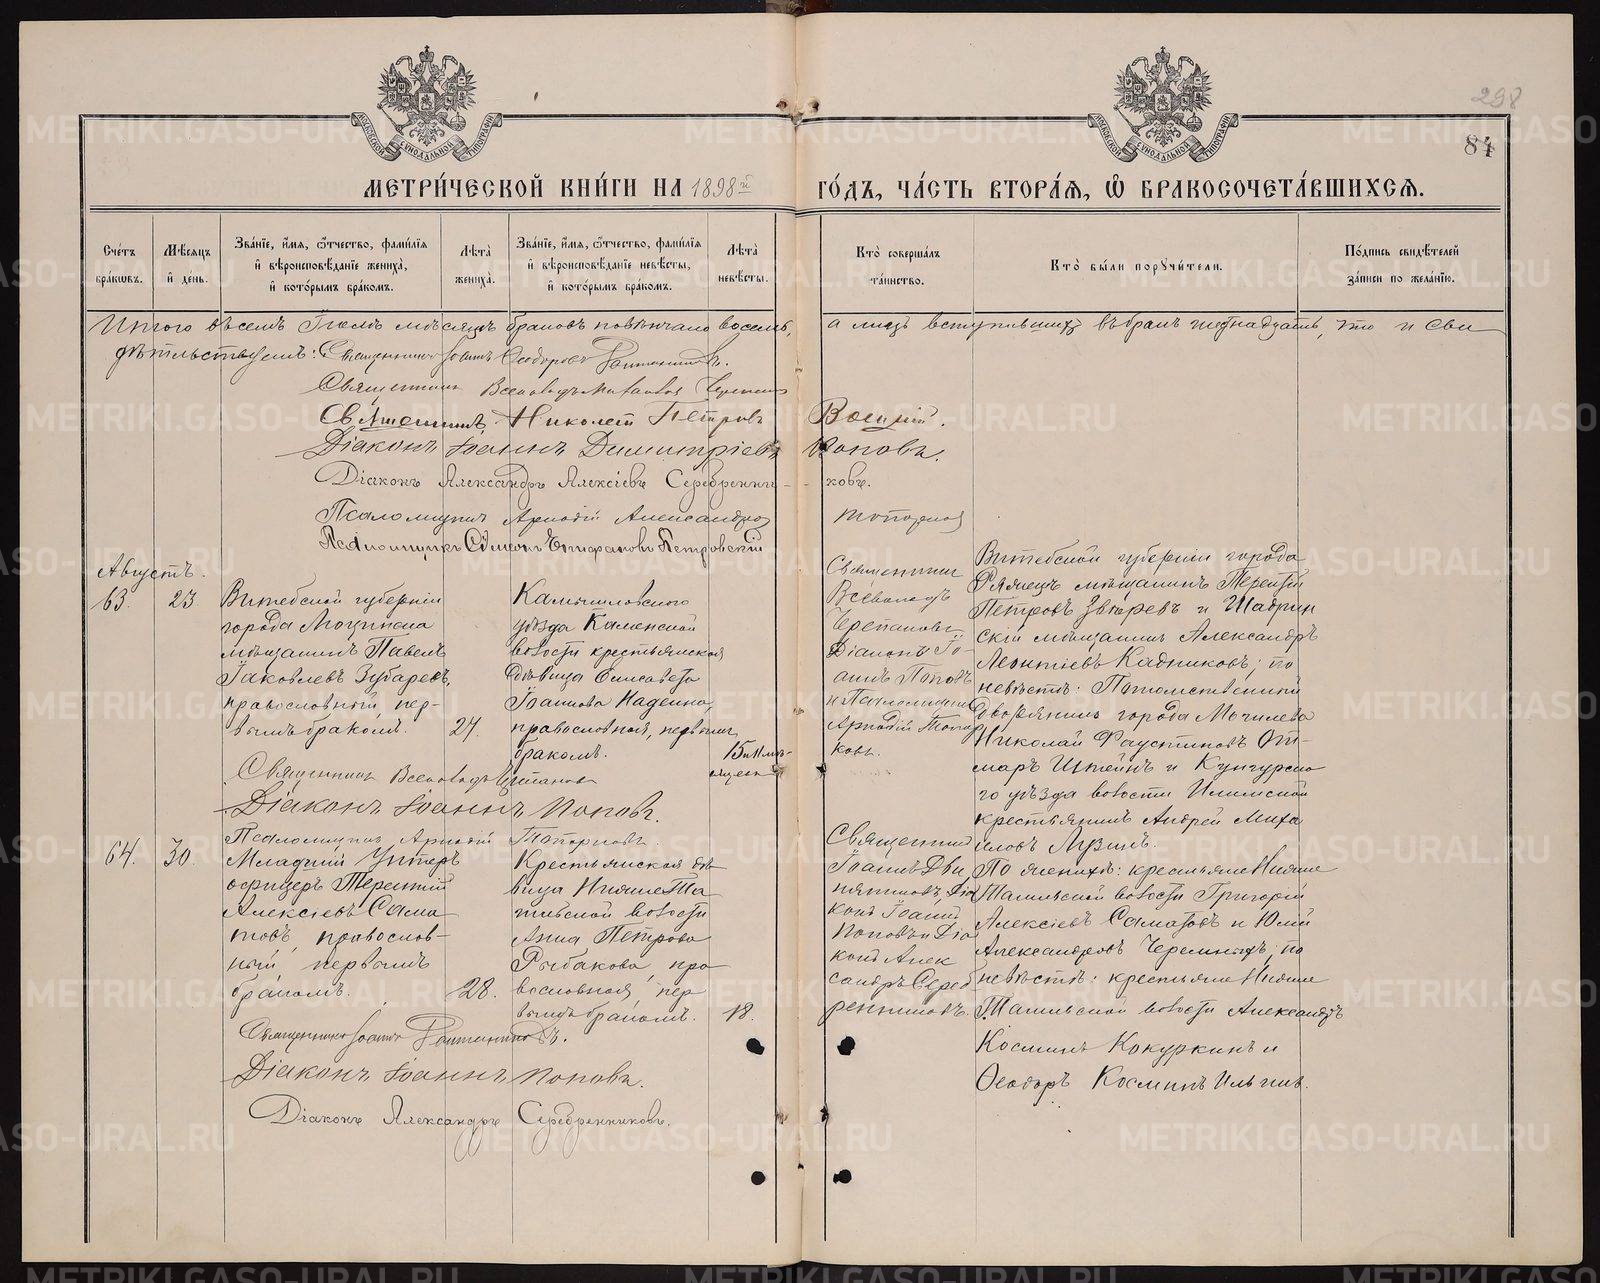 298
84
МЕТРИ́ЧЕСКОЙ КНИ́ГИ НА 1898й ГО́ДЪ, ЧА́СТЬ ВТОРА́Я, Ѿ БРАКОСОЧЕТА́ВШИХСЯ.
Сче́тъ бра́кѡвъ.
Мѣ́сяцъ и҆ де́нь.
Зва́нїе, и҆́мя, ѻ҆́тчество, фами́лїя и҆ вѣроисповѣ́данїе жениха̀, и҆ кото́рымъ бра́комъ.
Лѣ́та жениха̀.
Зва́нїе, и҆́мя, ѻ҆́тчество, фами́лїя и҆ вѣроисповѣ́данїе невѣ́сты, и҆ кото́рымъ бра́комъ.
Лѣ́та невѣ́сты.
Кто̀ соверша́лъ та́инство.
Кто̀ бы́ли порꙋчи́тели.
По́дпись свидѣ́телей за́писи по жела́нїю.
Итого въ семъ Іюлѣ мѣсяцѣ браковъ повѣнчано восемь, а лицъ вступившихъ въ бракъ шестнадцать, что и сви
дѣтельствуемъ: Священникъ Іоаннъ Ѳеодоровъ
Священникъ Всеволодъ
Священникъ Николай Петровъ
Діаконъ Іоаннъ Димитріевъ Поповъ.
Діаконъ Александръ Алексіевъ Серебренни-ковъ.
Псаломщикъ Аркадій Александровъ Топорковъ
Псаломщикъ Симеонъ Епифановъ Петровскій
Августъ.
63.
23.
Витебской губерніи
города Люцинска
мѣщанинъ Павелъ
Іаковлевъ Зубаревъ,
православный, пер-
вымъ бракомъ.
24.
Камышловскаго
уѣзда Каменской
волости крестьянская
дѣвица Елисавета
Іоаннова Надеина,
православная, первымъ
бракомъ.
15
Священникъ
Всеволодъ
Черепановъ,
Діаконъ Іо-
аннъ Поповъ
и Псаломщикъ
Аркадій Топор
ковъ.
Витебской губерніи города
мѣщанинъ Терентій
Петровъ Звѣревъ и Шадрин
скій мѣщанинъ Александръ
Леонтіевъ Кадниковъ; по
невѣстѣ: Потомственный
Дворянинъ города Могилева
Николай Фаустиновъ От-
маръ Штейнъ и Кунгурска
го уѣзда волости Илимской
крестьянинъ Андрей Миха
иловъ Лузинъ.
Священникъ Всеволодъ Черепановъ
Діаконъ Іоаннъ Поповъ.
Псаломщикъ Аркадій Топорковъ.
64.
30.
Младшій Унтеръ
офицеръ Терентій
Алексіевъ Сама
товъ, православ-
ный, первымъ
бракомъ.
28.
Крестьянская дѣ
вица Нижне Та
гильской волости
Анна Петрова
Рыбакова, пра
вославная, пер
вымъ бракомъ.
18.
Священникъ
Іоаннъ Дви
няниновъ, Діа
конъ Іоаннъ
Поповъ и Діа
конъ Алек
сандръ Сереб
ренниковъ.
По женихѣ: крестьяне Нижне
Тагильской волости Григорій
Алексіевъ Саматовъ и Юлій
Александровъ Черемныхъ; по
невѣстѣ: крестьяне Нижне
Тагильской волости Александръ
Косминъ Кокуркинъ и
Ѳеодоръ Косминъ Ильинъ.
Священникъ Іоаннъ
Діаконъ Іоаннъ Поповъ.
Діаконъ Александръ Серебренниковъ.